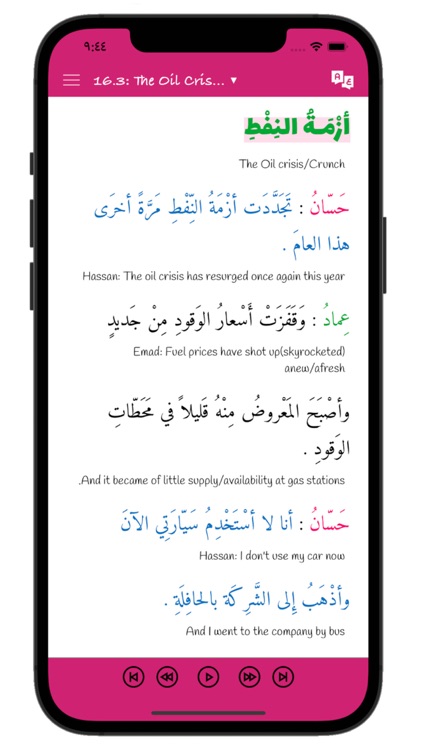 ٩:٤٤
16.3: The Oil Cris... ▼
أزْمَةُ النِفْطِ
The Oil crisis/Crunch
حَسّانُ : تَجَدَّدَت أزْمَةُ النِّفْطِ مَرَّةً أخرَى
هذا العامَ .
Hassan: The oil crisis has resurged once again this year
عِمادُ : وَقَفَزَتْ أَسْعارُ الوَقودِ مِنْ جَديدٍ
Emad: Fuel prices have shot up(skyrocketed)
anew/afresh
وأصْبَحَ المَعْروضُ مِنْهُ قَليلاً في مَحَطّاتِ
الوَقودِ .
.And it became of little supply/availability at gas stations
حَسّانُ : أنا لا أسْتَخْدِمُ سَيّارَتِي الآنَ
Hassan: I don't use my car now
وأذْهَبُ إِلى الشَّرِكَة بالحافِلَةِ .
And I went to the company by bus